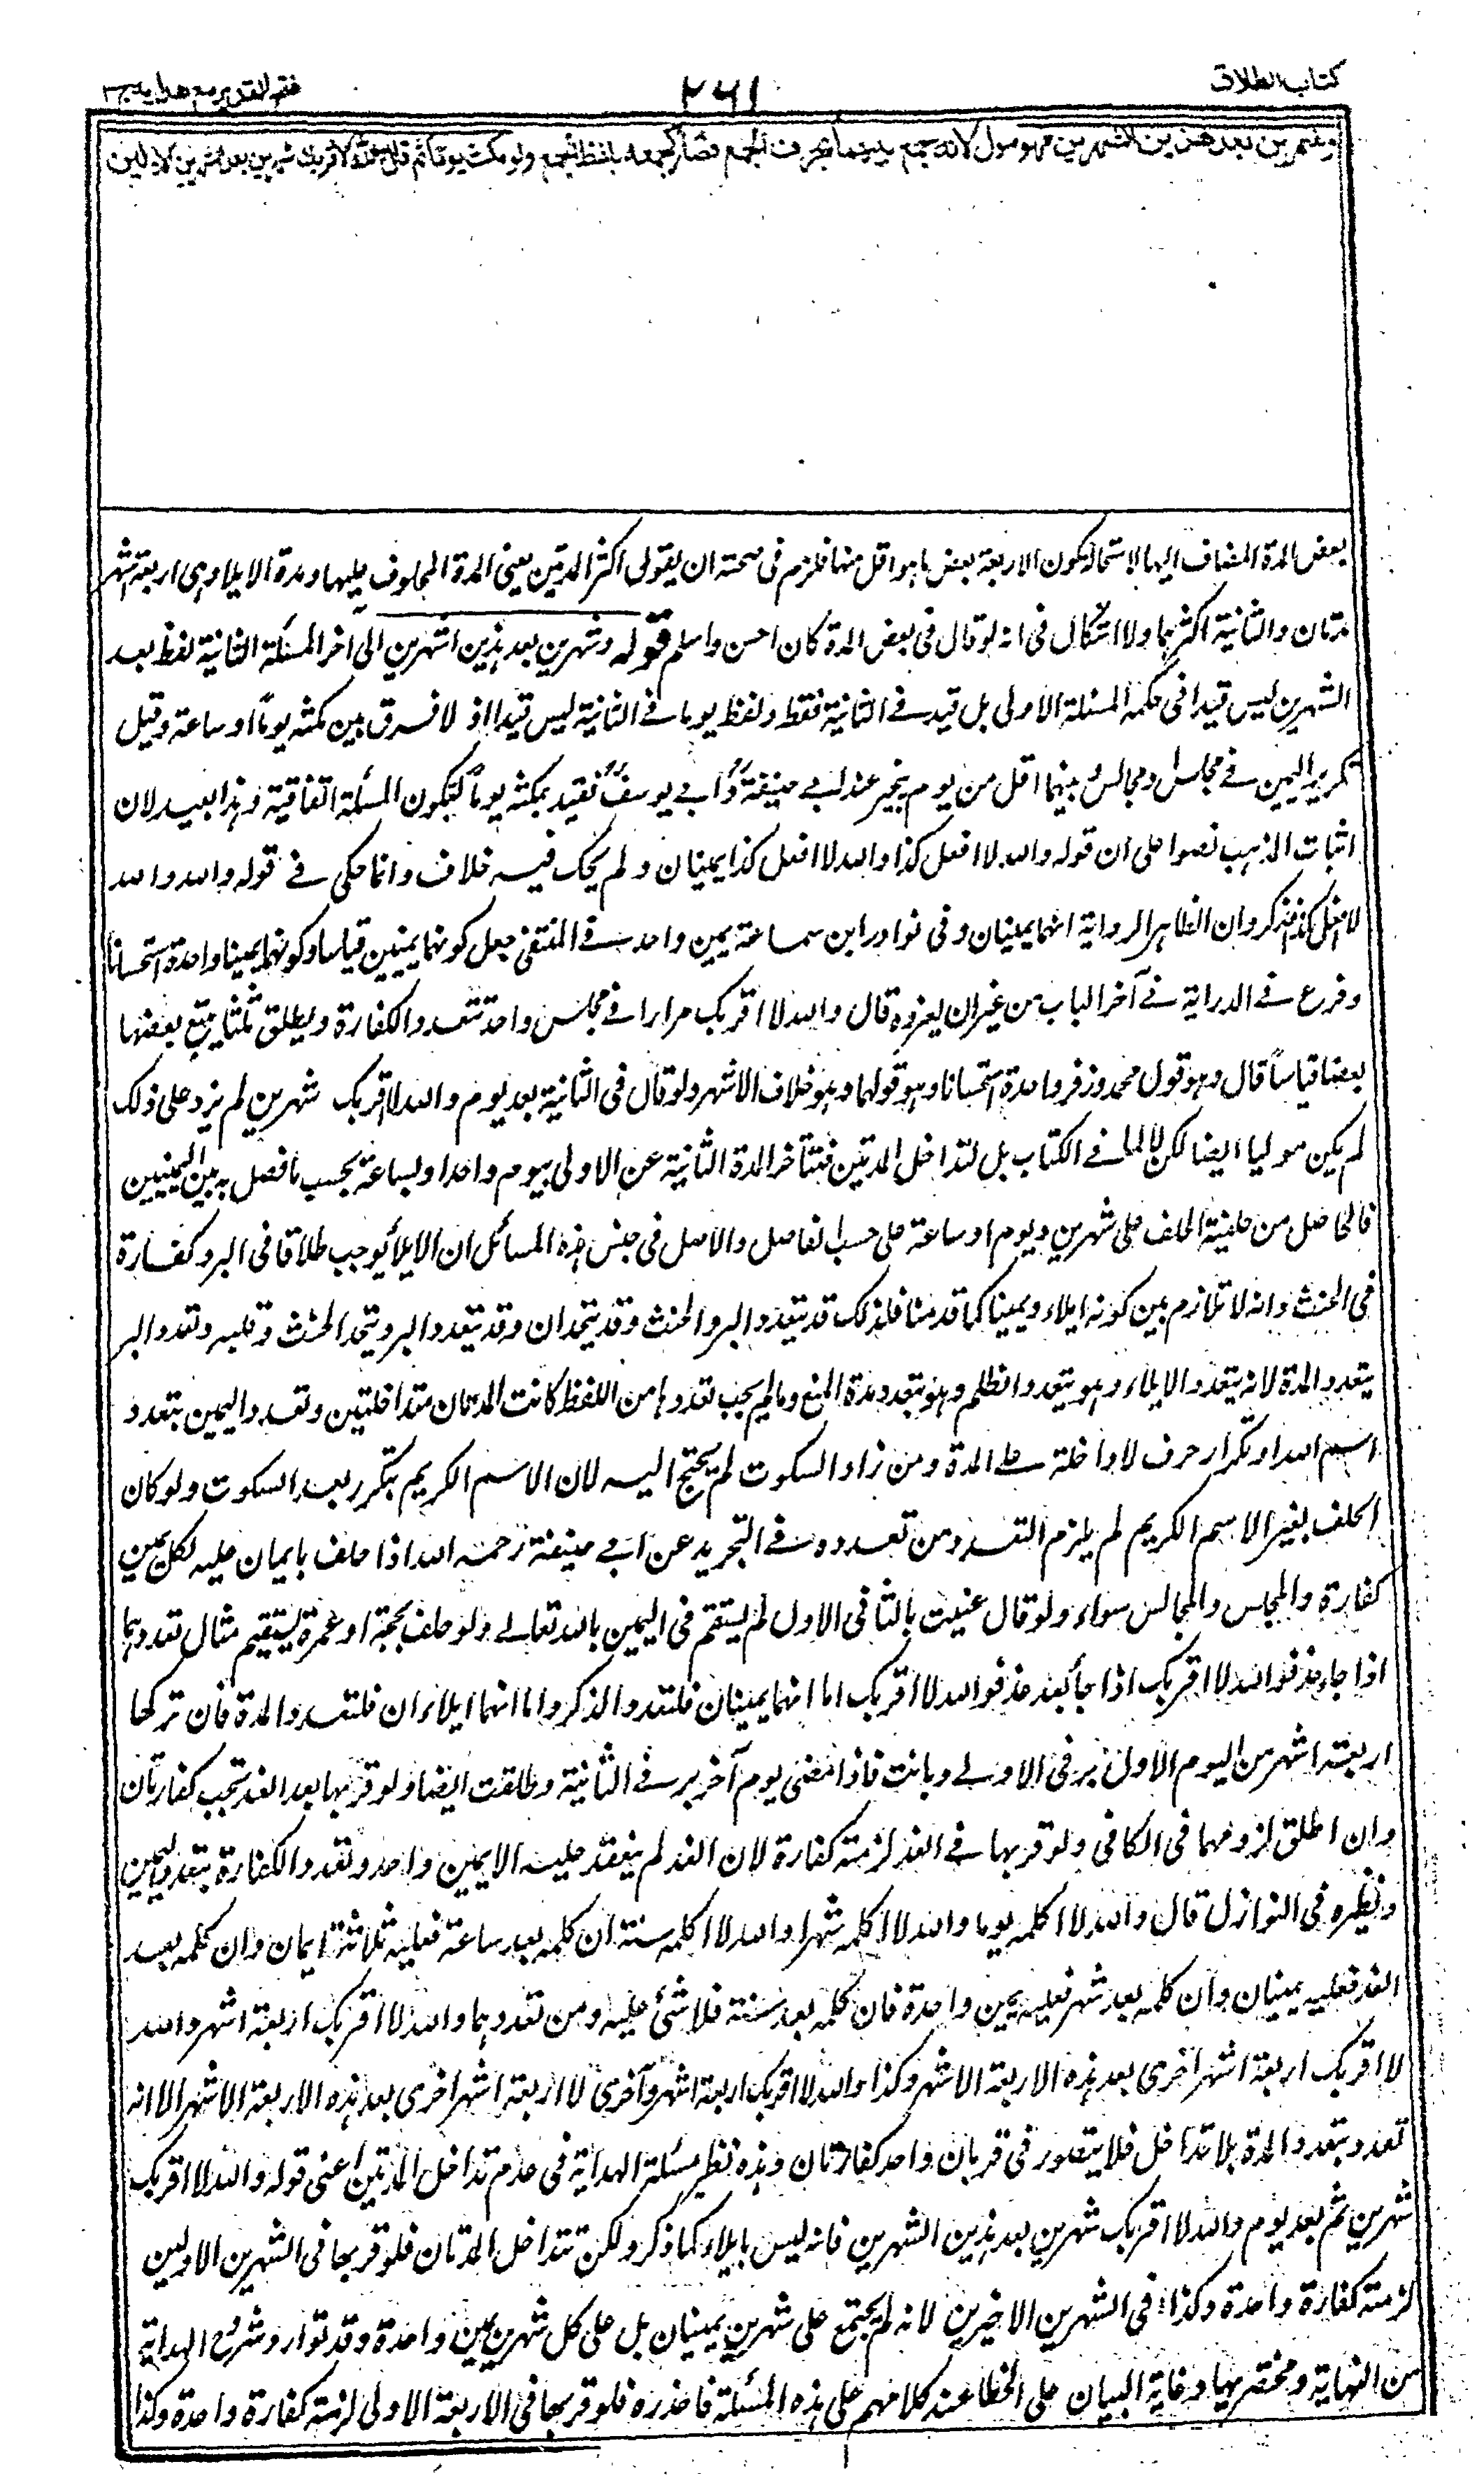 كتاب الطلاق
٢٤١
فتح القدير مع هدايه ج ٣
وشهرين بعد هذين الشهرين فهو مول لانه جمع بينهما بحرف الجمع فصار كجمعه بلفظ الجمع ولو مكث يوما ثم قال والله لا اقربك شهرين بعد الشهرين الاولين
بعض المدة المضاف اليها لاستحالة كون الاربعة بعض ما هو اقل منها فلزم فى صحته ان يقول اكثر المدتين يعنى المدة المحلوف عليها ومدة الايلاء وهى اربعة اشهر
مدتان والثانية اكثرهما ولا اشكال فى انه لو قال فى بعض المدة كان احسن واسلم قوله وشهرين بعد هذين الشهرين الى آخر المسئلة الثانية لفظ بعد
الشهرين ليس قيدا فى حكم المسئلة الاولى بل قيد فے الثانية فقط ولفظ يوما فے الثانية ليس قيدا اذ لا فرق بين مكثه يوما او ساعة وقيل
تكرير اليمين فے مجلس ومجالس بينهما اقل من يوم عند ابے حنيفة وابے يوسف فقيد بمكثه يوما لتكون المسئلة اتفاقية وهذا بعيد لان
اثبات المذهب نصوا على ان قوله والله لا افعل كذا والله لا افعل كذا يمينان ولم يحك فيه خلاف وانما حكى فے قوله والله والله
لا افعل كذا فذكروا ان الظاهر الرواية انهما يمينان وفى نوادر ابن سماعة يمين واحد وفے المنتقى جعل كونهما يمينين قياسا وكونهما يمينا واحدة استحسانا
وفرع فے الدراية فے آخر الباب من غير ان يعزوه قال والله لا اقربك مرارا فے مجلس واحد تتعدد الكفارة ويطلق ثلثا يتبع بعضها
بعضا قياسا قال وهو قول محمد وزفر وواحدة استحسانا وهو قولهما وهو خلاف الاشهر ولو قال فى الثانية بعد يوم والله لا اقربك شهرين لم يزد على ذلك
لم يكن موليا ايضا لكن لا لما فے الكتاب بل لتداخل المدتين فتتأخر المدة الثانية عن الاولى بيوم واحد او بساعة بحسب ما فصل به بين اليمينين
فالحاصل من حلفيه الحلف على شهرين ويوم او ساعة على حسب الفاصل والاصل فى جنس هذه المسائل ان الايلاء يوجب طلاقا فى البر وكفارة
فى الحنث وانه لا تلازم بين كونه ايلاء ويمينا كما قدمنا فلذلك قد يتعدد البر والحنث وقد يتحدان وقد يتعدد البر ويتحد الحنث وقلبه وتعدد البر
بتعدد المدة لانه بتعدد الايلاء وهو بتعدد الظلم وهو بتعدد مدة المنع وما لم يجب تعددها من اللفظ كانت المدتان متداخلتين وتعدد اليمين بتعدد
اسم الله او تكرار حرف لا داخلة على المدة ومن زاد السكوت لم يحتج اليه لان الاسم الكريم يتكرر بعد السكوت ولو كان
الحلف بغير الاسم الكريم لم يلزم التعدد ومن تعدده فے التجريد عن ابے حنيفة رحمه الله اذا حلف بايمان عليه لكل يمين
كفارة والمجلس والمجالس سواء ولو قال عنيت بالثانى الاول لم يستقم فى اليمين بالله تعالے ولو حلف بحجة او عمرة يستقيم مثال تعددهما
اذا جاء غد فوالله لا اقربك اذا جاء بعد غد فوالله لا اقربك اما انهما يمينان فلتعدد الذكر واما انهما ايلاءان فلتعدد المدة فان تركها
اربعة اشهر من اليوم الاول بر فى الاولے وبانت فاذا مضى يوم آخر بر فے الثانية وطلقت ايضا ولو قربها بعد الغد تجب كفارتان
وان اطلق لزومهما فى الكافى ولو قربها فے الغد لزمته كفارة لان الغد لم ينعقد عليه الا يمين واحد وتعدد الكفارة بتعدد اليمين
ونظيره فى النوازل قال والله لا اكلمه يوما والله لا اكلمه شهرا والله لا اكلمه سنة ان كلمه بعد ساعة فعليه ثلاثة ايمان وان كلمه بعد
الغد فعليه يمينان وان كلمه بعد شهر فعليه يمين واحدة فان كلمه بعد سنة فلا شئ عليه ومن تعددهما والله لا اقربك اربعة اشهر والله
لا اقربك اربعة اشهر اخرى بعد هذه الاربعة الاشهر وكذا والله لا اقربك اربعة اشهر واخرى لا اربعة اشهر اخرى بعد هذه الاربعة الاشهر الا انه
تعدد بتعدد المدة بلا تداخل فلا يتصور فى قربان واحد كفارتان وهذه نظير مسئلة الهداية فى عدم تداخل المدتين اعنى قوله والله لا اقربك
شهرين ثم بعد يوم والله لا اقربك شهرين بعد هذين الشهرين فانه ليس بايلاء كما ذكر ولكن تتداخل المدتان فلو قربها فى الشهرين الاولين
لزمته كفارة واحدة وكذا فى الشهرين الاخيرين لانه لم يجتمع على شهرين يمينان بل على كل شهرين يمين واحدة وقد توارد شروح الهداية
من النهاية ومختصريها وغاية البيان على الخطأ عند كلامهم على هذه المسئلة فاحذره فلو قربها فى الاربعة الاولى لزمته كفارة واحدة وكذا